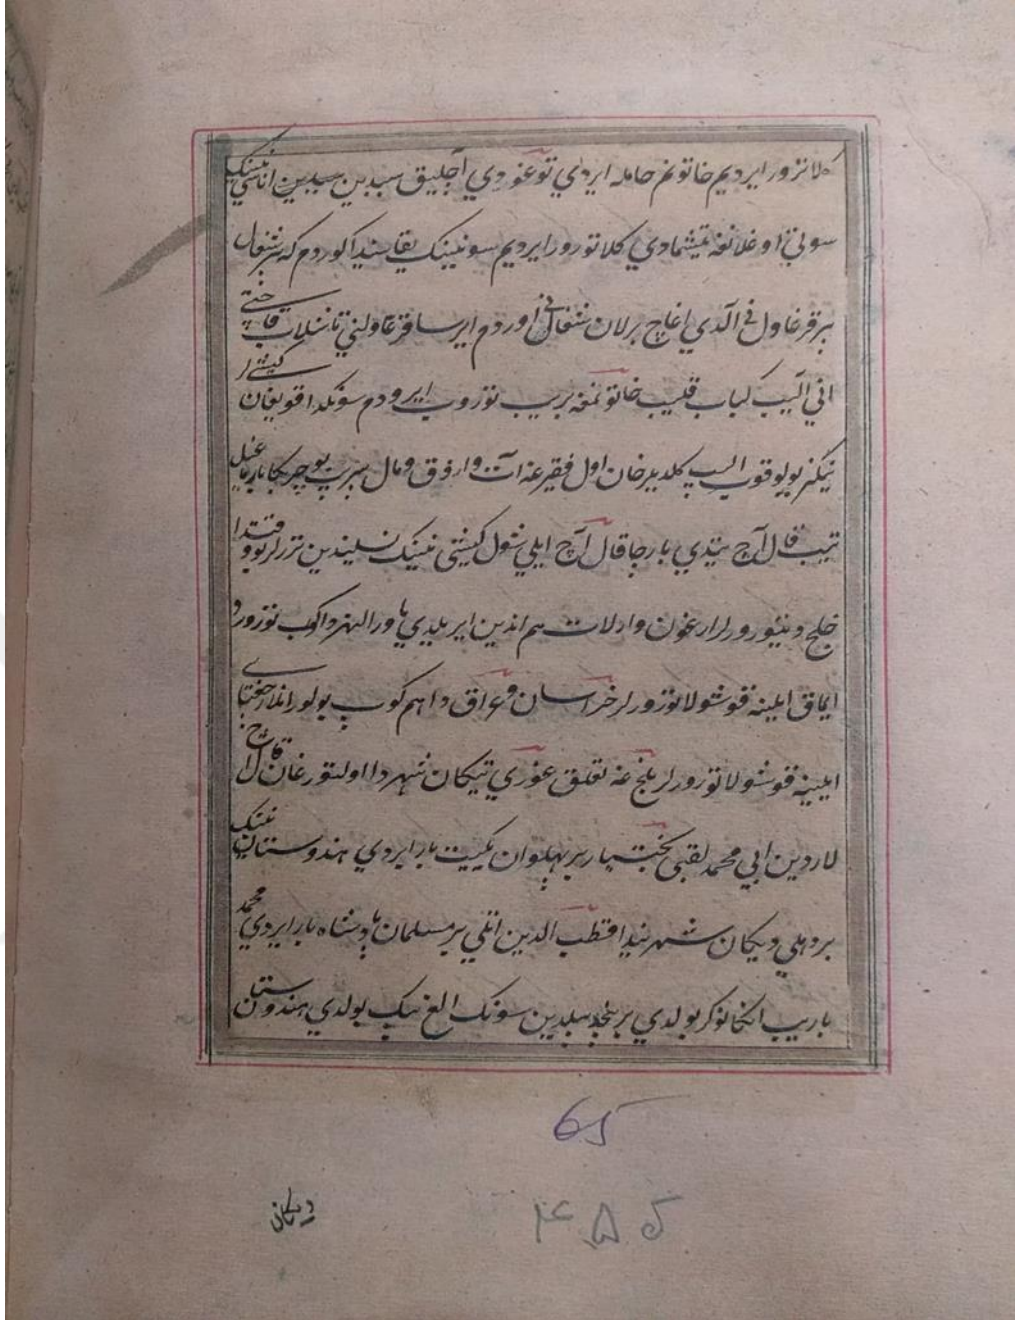 کلاتورور ایردیم خاتونم حامله ایردی توغوردی آجلیق سببدین سیدین اناسی‌نینک
سوتی اوغلانغه یتیشمادی کلاتورور ایردیم سونینک یقاسیندا کوردوم که بر شغال
بر قرغاول نی آلدی اغاچ برلان شغال نی اوردوم ایرسا قرغاولنی تاشلاب قاچتی
انی آلیب کباب قلیب خاتونمغه بریب تورورب ایردوم سونکدا قویغان کیشی لر
نیکز یولوقوب الیب کلدیلر خان اول فقیرغه آت و ازوق و مال بیریب بو چریککا بارماغیل
تیب قال آچ تیدی بارجا قال آچ ایلی شول کیشی نینک نسلیندین تررلر بو وقتدا
خلج دیتورورلر ارغون و ارلات هم اندین ایریلدی ماورالنهردا کوب تورور
ایماق ایلینه قوشولا تورورلر خراسان و عراق دا هم کوب بولور انلار ختای
ایلینه قوشولا تورورلر بلخ غه تعلق غوری تیکان شهردا اولتورغان قال آچ
لاردین ابی محمد لقبی بختیار بر پهلوان یکیت بار ایردی هندوستان نینک
بر دهلی دیکان شهریندا قطب الدین اتلی بر مسلمان پادشاه بار ایردی محمد
باریب انکا نوکر بولدی بر نجه ییلدین سونک الغ بیک بولدی هندوستان
65
۴۵۵
دیکانی